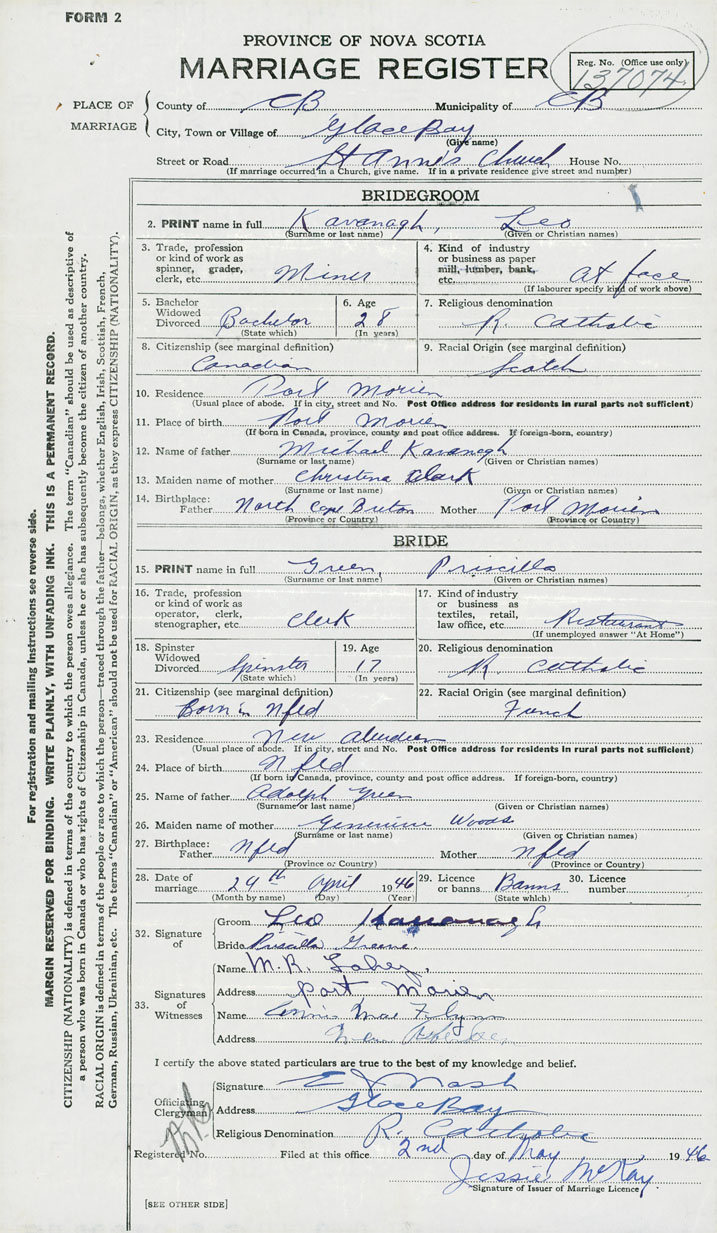 FORM 2
PROVINCE OF NOVA SCOTIA
MARRIAGE REGISTER
Reg. No. (Office use only)
137074
PLACE OF MARRIAGE
County of CB Municipality of CB
City, Town or Village of Glace Bay
(Give name)
Street or Road St Anne's Church House No.
(If marriage occurred in a Church, give name. If in a private residence give street and number)
BRIDEGROOM
2. PRINT name in full Kavanagh, Leo
(Surname or last name) (Given or Christian names)
3. Trade, profession or kind of work as spinner, grader, clerk, etc. Miner
4. Kind of industry or business as paper mill, lumber, bank, etc. At face
(If labourer specify kind of work above)
5. Bachelor Widowed Divorced Bachelor
(State which)
6. Age 28
(In years)
7. Religious denomination
R. Catholic
8. Citizenship (see marginal definition)
Canadian
9. Racial Origin (see marginal definition)
Scotch
10. Residence Port Morien
(Usual place of abode. If in city, street and No. Post Office address for residents in rural parts not sufficient)
11. Place of birth Port Morien
(If born in Canada, province, county and post office address. If foreign-born, country)
12. Name of father Michael Kavanagh
(Surname or last name) (Given or Christian names)
13. Maiden name of mother Christena Clark
(Surname or last name) (Given or Christian names)
14. Birthplace: Father North Cape Breton Mother Port Morien
(Province or Country) (Province or Country)
BRIDE
15. PRINT name in full Green, Priscilla
(Surname or last name) (Given or Christian names)
16. Trade, profession or kind of work as operator, clerk, stenographer, etc. Clerk
17. Kind of industry or business as textiles, retail, law office, etc. Restaurant
(If unemployed answer "At Home")
18. Spinster Widowed Divorced Spinster
(State which)
19. Age 17
(In years)
20. Religious denomination
R. Catholic
21. Citizenship (see marginal definition)
Born in Nfld
22. Racial Origin (see marginal definition)
French
23. Residence New Aberdeen
(Usual place of abode. If in city, street and No. Post Office address for residents in rural parts not sufficient)
24. Place of birth Nfld
(If born in Canada, province, county and post office address. If foreign-born, country)
25. Name of father Adolph Green
(Surname or last name) (Given or Christian names)
26. Maiden name of mother Woods
(Surname or last name) (Given or Christian names)
27. Birthplace: Father Nfld Mother Nfld
(Province or Country) (Province or Country)
28. Date of marriage 29th April 1946
(Month by name) (Day) (Year)
29. Licence or banns Banns
(State which)
30. Licence number
32. Signature of
Groom Leo Kavanagh
Bride Priscilla Greene.
33. Signatures of Witnesses
Name M. R.
Address Port Morien
Name Annie Mae Flynn
Address New
I certify the above stated particulars are true to the best of my knowledge and belief.
Officiating Clergyman
Signature E J Nash
Address Glace Bay
Religious Denomination R. Catholic
Registered No. Filed at this office 2nd day of May 1946
Jessie McKay
Signature of Issuer of Marriage Licence
[SEE OTHER SIDE]
For registration and mailing instructions see reverse side.
MARGIN RESERVED FOR BINDING. WRITE PLAINLY, WITH UNFADING INK. THIS IS A PERMANENT RECORD.
CITIZENSHIP (NATIONALITY) is defined in terms of the country to which the person owes allegiance. The term "Canadian" should be used as descriptive of
a person who was born in Canada or who has rights of Citizenship in Canada, unless he or she has subsequently become the citizen of another country.
RACIAL ORIGIN is defined in terms of the people or race to which the person—traced through the father—belongs, whether English, Irish, Scottish, French,
German, Russian, Ukrainian, etc. The terms "Canadian" or "American" should not be used for RACIAL ORIGIN, as they express CITIZENSHIP (NATIONALITY).